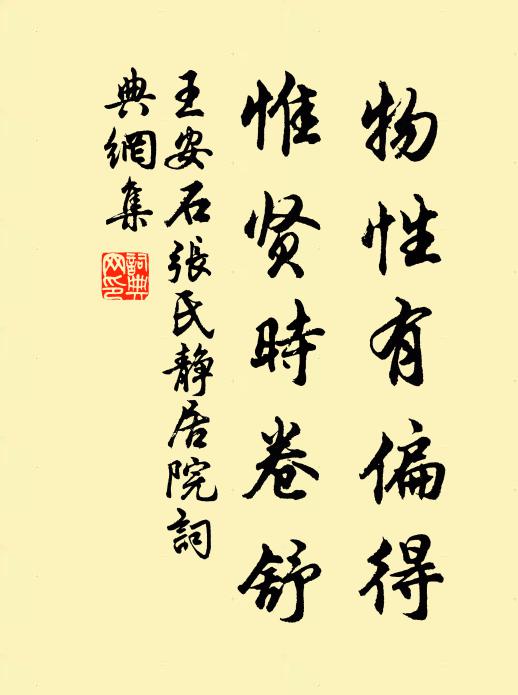 物性有偏得
惟贤時卷舒
王安石張氏静居院詞
典網集
詞典網印